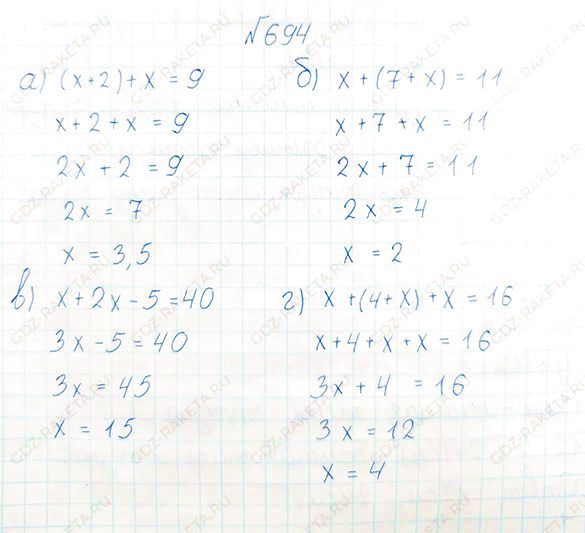 №694
а) (x+2)+x = 9
x+2+x = 9
2x+2 = 9
2x = 7
x = 3,5
б) x+(7+x) = 11
x+7+x = 11
2x+7 = 11
2x = 4
x = 2
в) x+2x-5=40
3x-5=40
3x = 45
x = 15
г) x+(4+x)+x = 16
x+4+x+x = 16
3x+4 = 16
3x = 12
x = 4
GDZ-RAKETA.RU